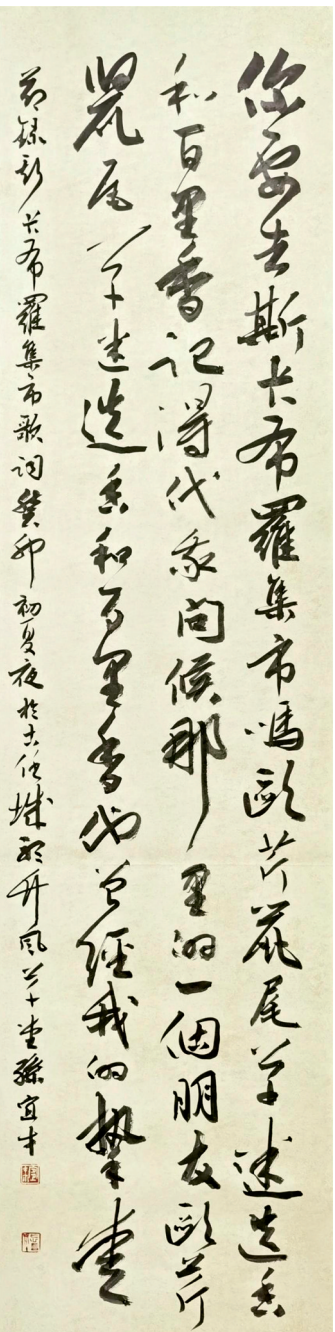 你要去斯卡布羅集市嗎歐芹鼠尾草迷迭香
和百里香記得代我問候那里的一個朋友歐芹
鼠尾草迷迭香和百里香他曾經我的摯愛
節錄斯卡布羅集市歌詞癸卯初夏夜於古任城聽竹風草堂孫宜才